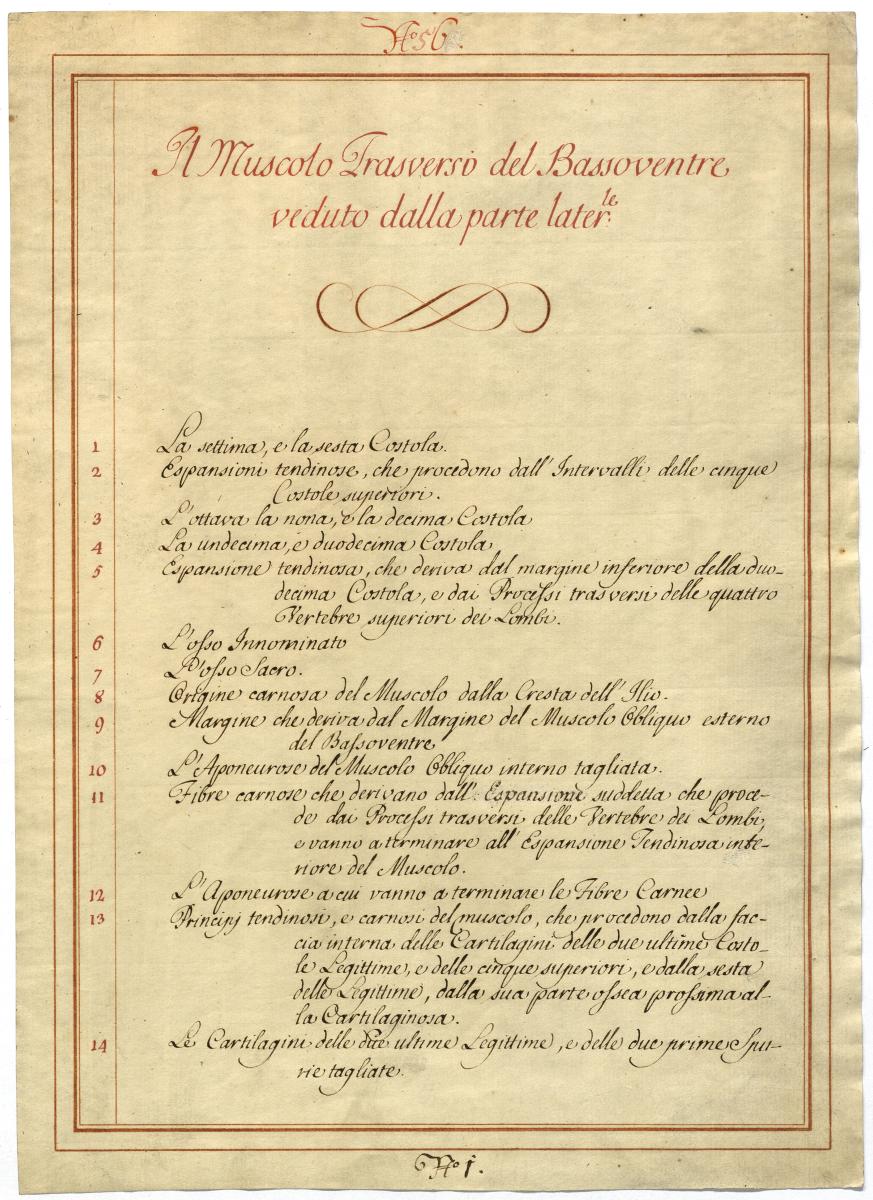 No 56.
Il Muscolo Trasverso del Bassoventre
veduto dalla parte later.le
1 La settima, e la sesta Costola.
2 Espansioni tendinose, che procedono dall' Intervalli delle cinque
Costole superiori.
3 L'ottava la nona, e la decima Costola
4 La undecima, e duodecima Costola
5 Espansione tendinosa, che deriva dal margine inferiore della duo-
decima Costola, e dai Processi trasversi delle quattro
Vertebre superiori dei Lombi.
6 L'osso Innominato
7 L'osso Sacro.
8 Origine carnosa del Muscolo dalla Cresta dell' Ilio.
9 Margine che deriva dal Margine del Muscolo Obliquo esterno
del Bassoventre
10 L'Aponeurose del Muscolo Obliquo interno tagliata.
11 Fibre carnose che derivano dall' Espansione suddetta che proce-
de dai Processi trasversi delle Vertebre dei Lombi,
e vanno a terminare all' Espansione Tendinosa inte-
riore del Muscolo.
12 L'Aponeurose a cui vanno a terminare le Fibre Carnee
13 Principj tendinosi, e carnosi del muscolo, che procedono dalla fac-
cia interna delle Cartilagini delle due ultime Costo-
le Legittime, e delle cinque superiori, e dalla sesta
delle Legittime, dalla sua parte ossea prossima al-
la Cartilaginosa.
14 Le Cartilagini delle due ultime Legittime, e delle due prime Spu-
rie tagliate.
No 1.